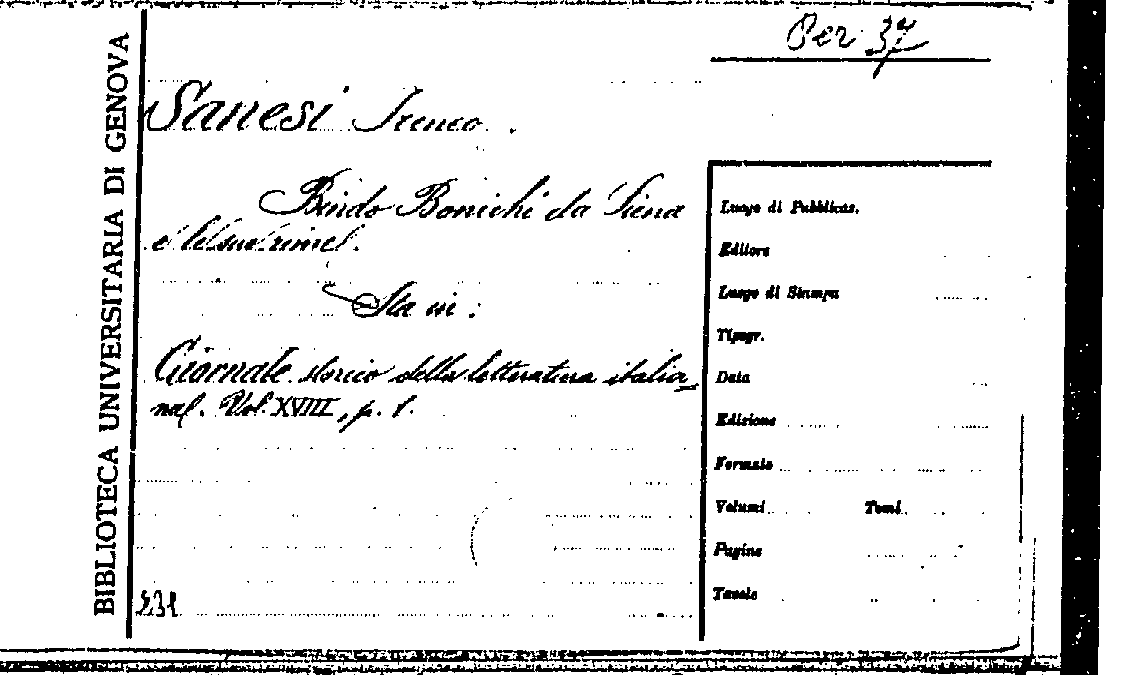 BIBLIOTECA UNIVERSITARIA DI GENOVA
Per 37
Sanesi Ireneo.
Bindo Bonichi da Siena
e le sue rime.
Sta in:
Giornale storico della letteratura italia
na. Vol. XVIII, p. 1.
231
Luogo di Pubblicaz.
Editore
Luogo di Stampa
Tipogr.
Data
Edizione
Formato
Volumi Tomi
Pagine
Tavole